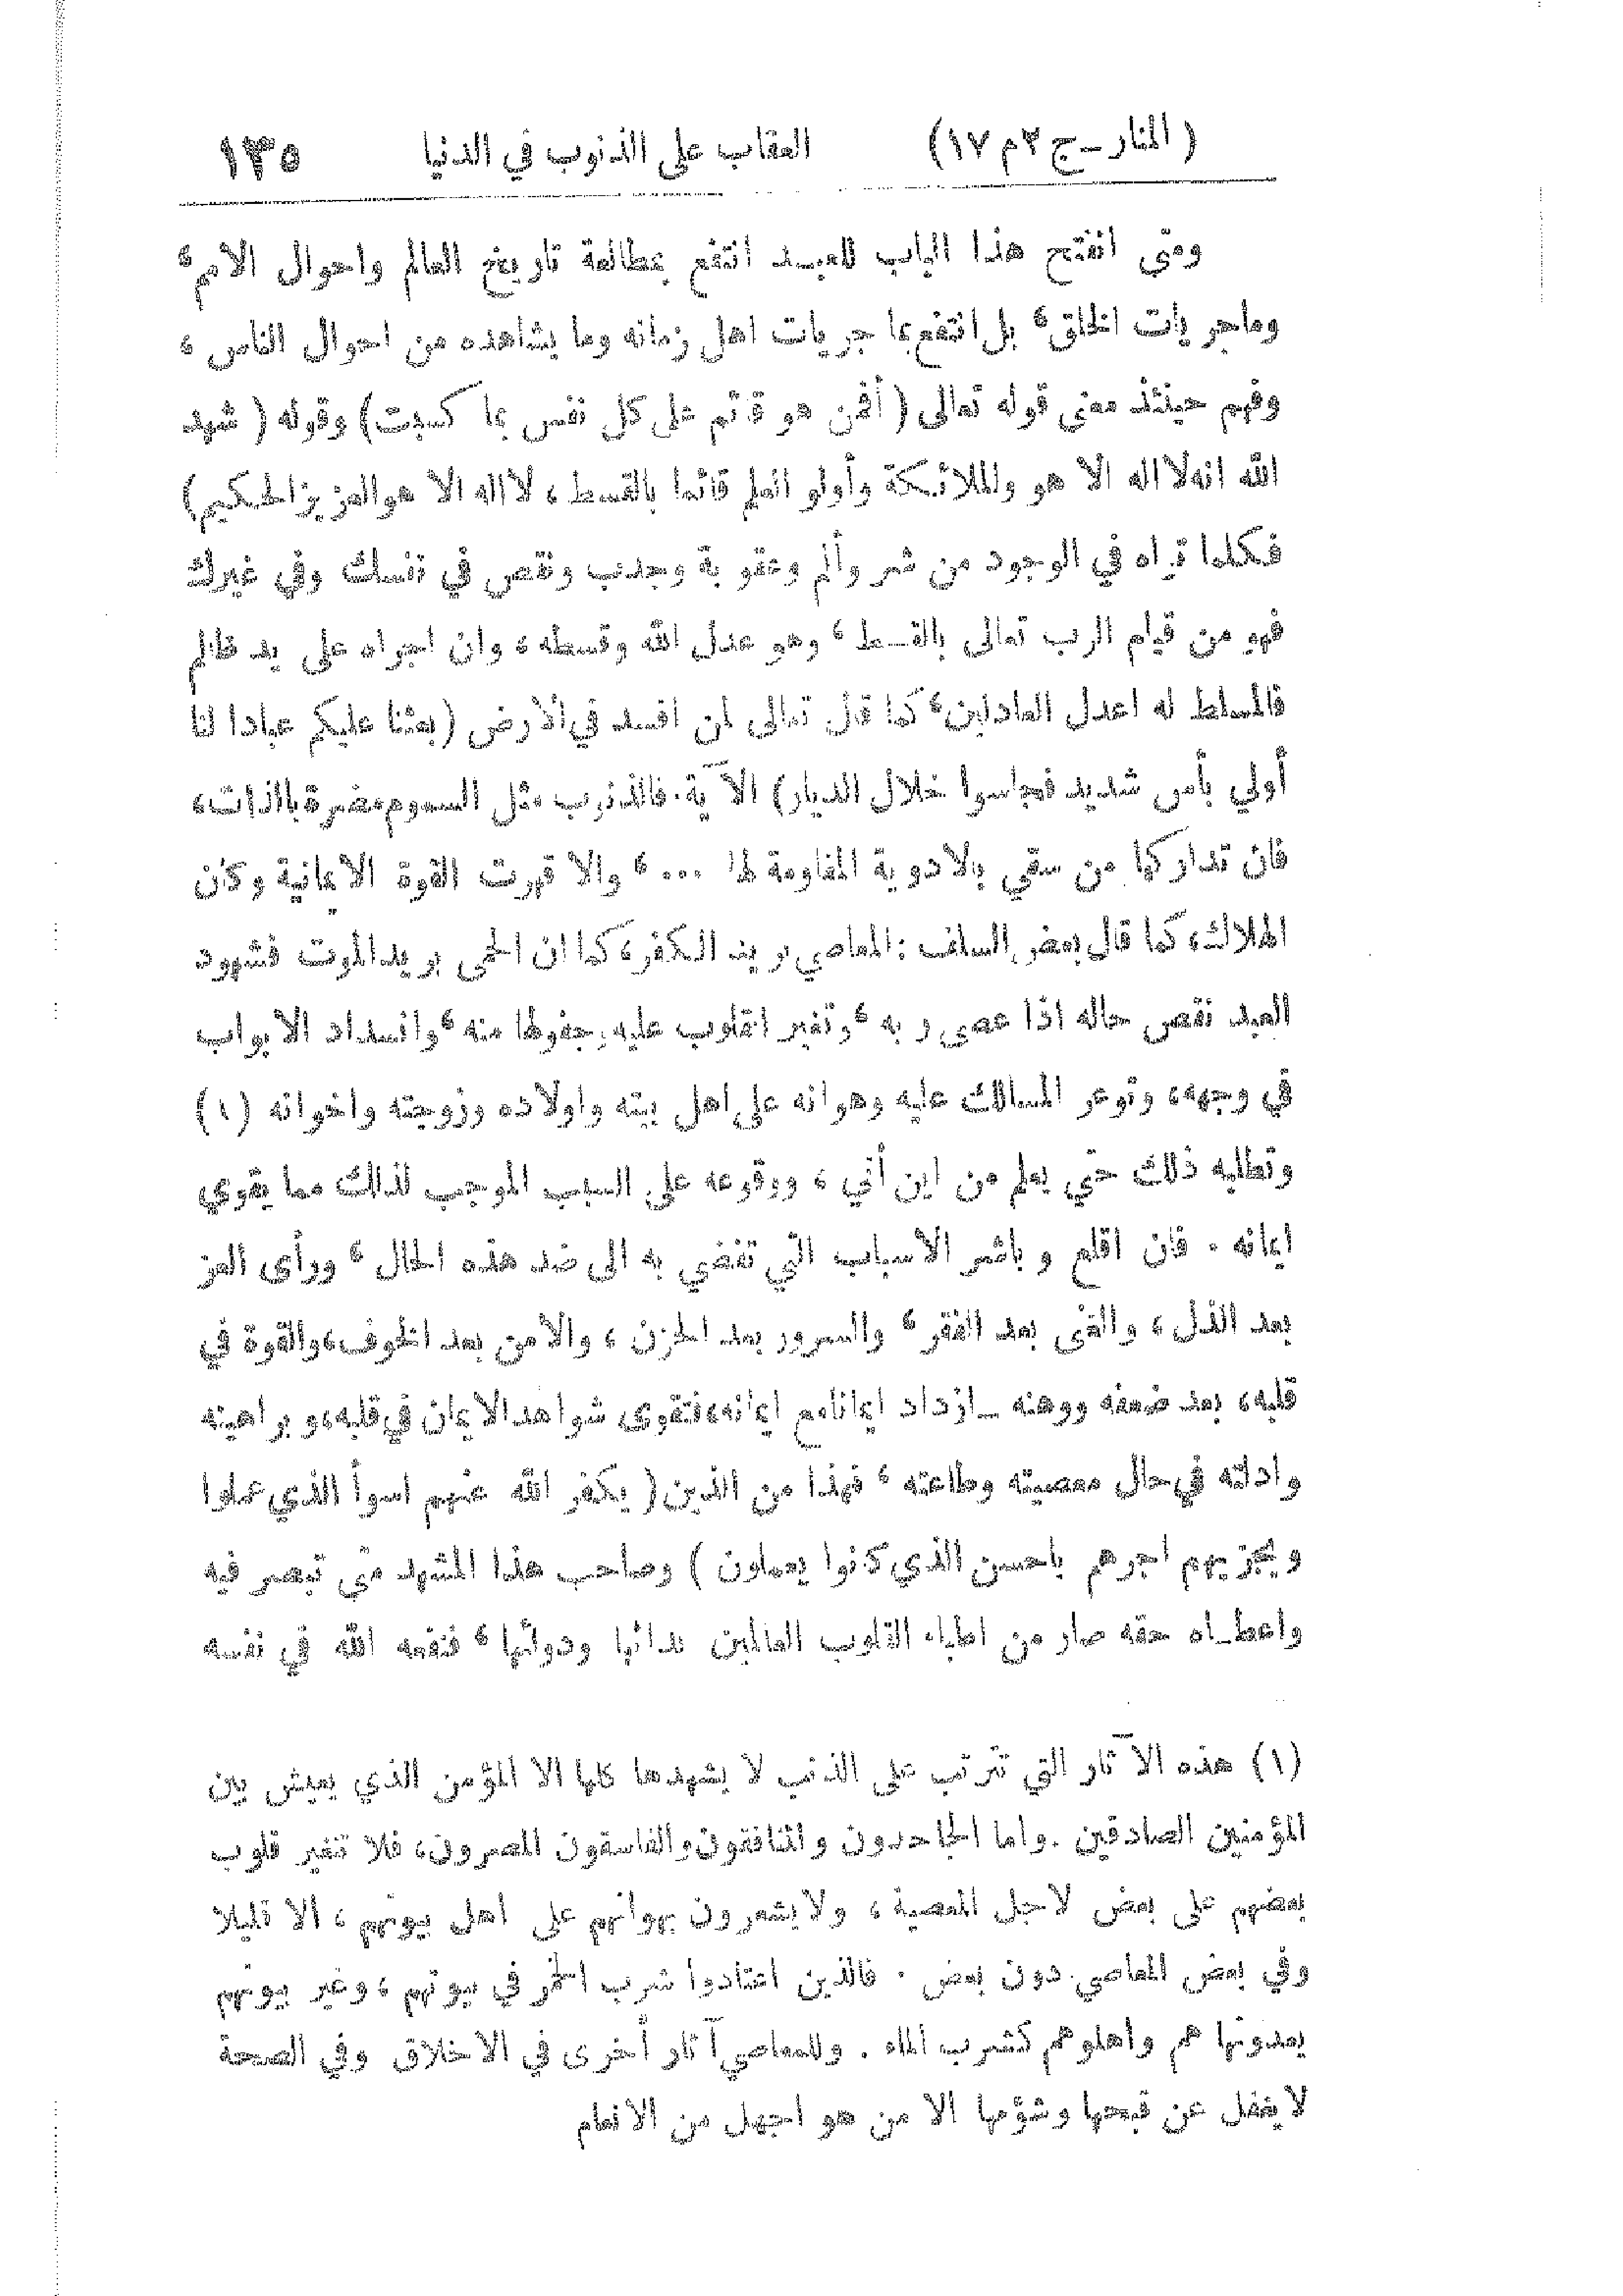 (المنار ـ ج ٢ م ١٧) العقاب على الذنوب في الدنيا ١٣٥
ومتى انفتح هذا الباب للعبد انتفع بمطالعة تاريخ العالم واحوال الامم،
وماجريات الخلق، بل انتفع بما جريات اهل زمانه وما يشاهده من احوال الناس،
وفهم حينئذ معنى قوله تعالى (أفمن هو قائم على كل نفس بما كسبت) وقوله (شهد
الله انه لا اله الا هو والملائكة وأولو العلم قائما بالقسط، لا اله الا هو العزيز الحكيم)
فكلما تراه في الوجود من شر وألم وعقوبة وجدب ونقص في نفسك وفي غيرك
فهو من قيام الرب تعالى بالقسط، وهو عدل الله وقسطه، وان اجراه على يد ظالم
فالمسلط له اعدل العادلين، كما قال تعالى لمن افسد في الارض (بعثنا عليكم عبادا لنا
أولي بأس شديد فجاسوا خلال الديار) الآية. فالذنوب مثل السموم مضرة بالذات،
فان تداركها من سقي بالادوية المقاومة لها ...، والا قهرت القوة الايمانية وكان
الهلاك، كما قال بعض السلف: المعاصي بريد الكفر، كما ان الحمى بريد الموت فشهود
العبد نقص حاله اذا عصى ربه، وتغير القلوب عليه وجفولها منه، وانسداد الابواب
في وجهه، وتوعر المسالك عليه وهوانه على اهل بيته واولاده وزوجته واخوانه (١)
وتطلبه ذلك حتى يعلم من اين أتي، ووقوعه على السبب الموجب لذلك مما يقوي
ايمانه. فان اقلع وباشر الاسباب التي تفضي به الى ضد هذه الحال، ورأى العز
بعد الذل، والغنى بعد الفقر، والسرور بعد الحزن، والامن بعد الخوف، والقوة في
قلبه، بعد ضعفه ووهنه ـ ازداد ايمانا مع ايمانه، فتقوى شواهد الايمان في قلبه، وبراهينه
وادلته في حال معصيته وطاعته، فهذا من الذين (يكفر الله عنهم اسوأ الذي عملوا
ويجزيهم اجرهم باحسن الذي كانوا يعملون) وصاحب هذا المشهد متى تبصر فيه
واعطاه حقه صار من اطباء القلوب العالمين بدائها ودوائها، فنفعه الله في نفسه
(١) هذه الآثار التي تترتب على الذنب لا يشهدها كلها الا المؤمن الذي يعيش بين
المؤمنين الصادقين. واما الجاحدون والمنافقون والفاسقون المصرون، فلا تتغير قلوب
بعضهم على بعض لاجل المعصية، ولا يشعرون بهوانهم على اهل بيوتهم، الا قليلا
وفي بعض المعاصي دون بعض. فالذين اعتادوا شرب الخمر في بيوتهم، وغير بيوتهم
يعدونها هم واهلوهم كشرب الماء. وللمعاصي آثار أخرى في الاخلاق وفي الصحة
لا يغفل عن قبحها وشؤمها الا من هو اجهل من الانعام